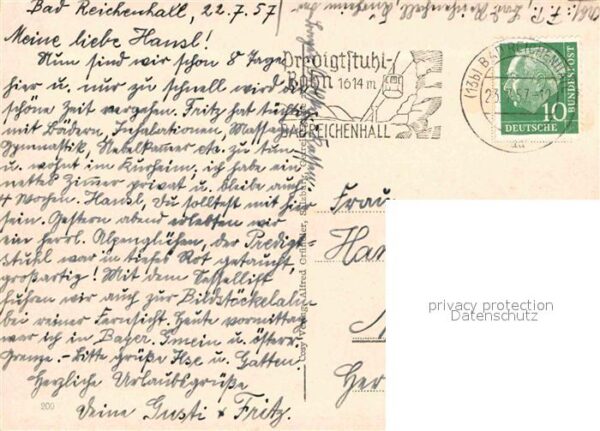 Bad Reichenhall, 22.7.57
Meine liebe Hansl!
Nun sind wir schon 8 Tage
hier u. nur zu schnell wird die
schöne Zeit vergehen. Fritz hat tüchtig
mit Bädern, Inhalationen, Massage,
Gymnastik, Nebelkammer etc. zu tun
u. wohnt im Kurheim, ich habe ein
nettes Zimmer privat u. bleibe auch
4 Wochen. Hansl, Du solltest mit hier
sein. Gestern abend erlebten wir
ein herrl. Alpenglühen, der Predigt-
stuhl war in tiefes Rot getaucht,
großartig! Mit dem Sessellift
fuhren wir auch zur Bildstöckelalm
bei reiner Fernsicht. Heute vormittag
war ich in Bayer. Gmein u. österr.
Grenze. - Bitte grüße Ilse u. Gatten.
Herzliche Urlaubsgrüße
Deine Gusti + Fritz.
200
Predigtstuhl-
Bahn 1614 m
BAD REICHENHALL
(13b) BAD REICHENHALL
23. 57
10
DEUTSCHE
BUNDESPOST
Cosy Verlag Alfred Gründler, Salzburg
Frau
Han
Her
privacy protection
Datenschutz